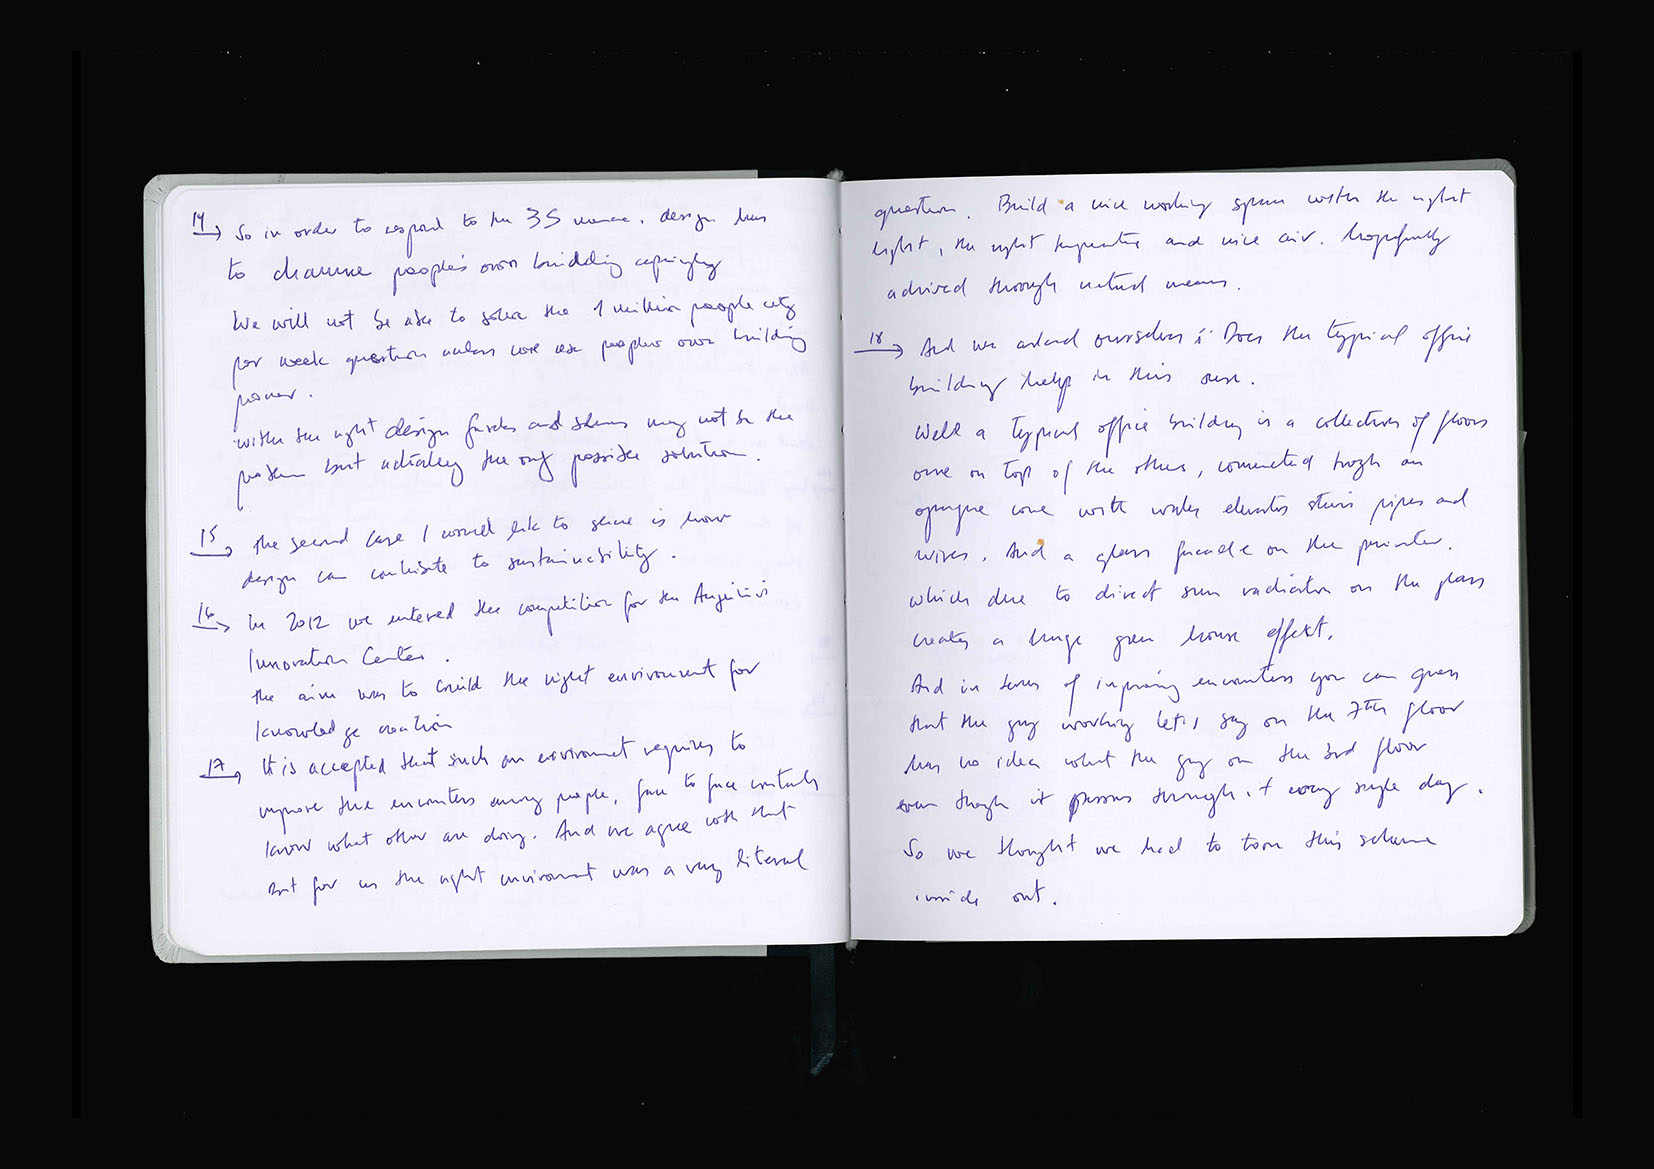 14
So in order to respond to the 3S menace, design has
to channel people's own building capacity
We will not be able to solve the 1 million people city
per week question unless we use peoples own building
power.
with the right design favelas and slums may not be the
problem but actually the only possible solution.
15
the second case I would like to share is how
design can contribute to sustainability.
16
In 2012 we entered the competition for the
Innovation Center.
the aim was to build the right environment for
knowledge creation
17
It is accepted that such an environment requires to
improve the encounters among people, face to face contacts
know what other are doing. And we agree with that
But for us the right environment was a very literal
question. Build a nice working space with the right
light, the right temperature and nice air. hopefully
achived through natural means.
18
And we asked ourselves: Does the typical office
building help in this sense.
Well a typical office building is a collection of floors
one on top of the other, connected trogh an
opaque core with elevators stairs pipes and
wires. And a glass facade on the perimeter.
which due to direct sun radiation on the glass
creates a huge green house effekt.
And in terms of improving encounters you can guess
that the guy working let's say on the 7th floor
has no idea what the guy on the 3rd floor
even though it passes through it every single day.
So we thought we had to torn this scheme
inside out.